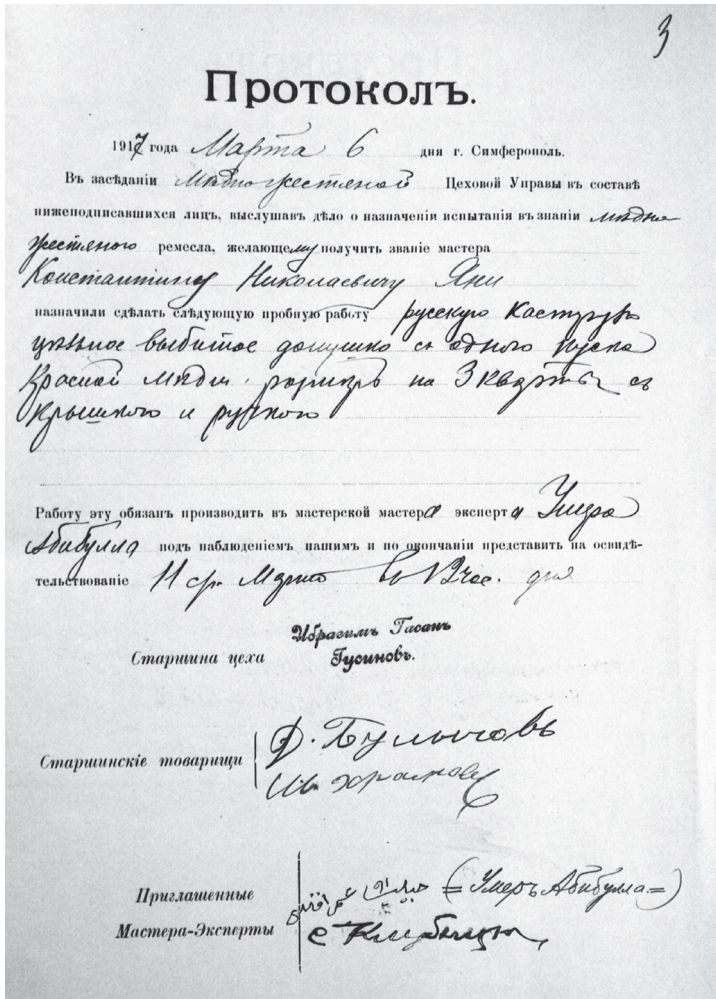 3
Протоколъ.
1917 года Марта 6 дня г. Симферополь.
Въ засѣданіи Мѣдножестяной Цеховой Управы въ составѣ
нижеподписавшихся лицъ, выслушавъ дѣло о назначеніи испытанія въ знаніи мѣдно
жестяного ремесла, желающему получить званіе мастера
Константину Николаевичу Яни
назначили сдѣлать слѣдующую пробную работу русскую каструлъ
цѣльное выбитое донушко съ одного куска
Красной мѣди размѣръ на 3 кварты съ
крышкою и ручкою
Работу эту обязанъ производить въ мастерской мастера эксперта Умера
Абибулла подъ наблюденіемъ нашимъ и по окончаніи представить на освидѣ-
тельствованіе 11 ср. Марта въ 12 час. дня
Старшина цеха Ибрагимъ Гасанъ
Гусиновъ.
Старшинскіе товарищи Д. Булычовъ
Храмовъ
Приглашенные (=Умеръ Абибулла=)
Мастера-Эксперты